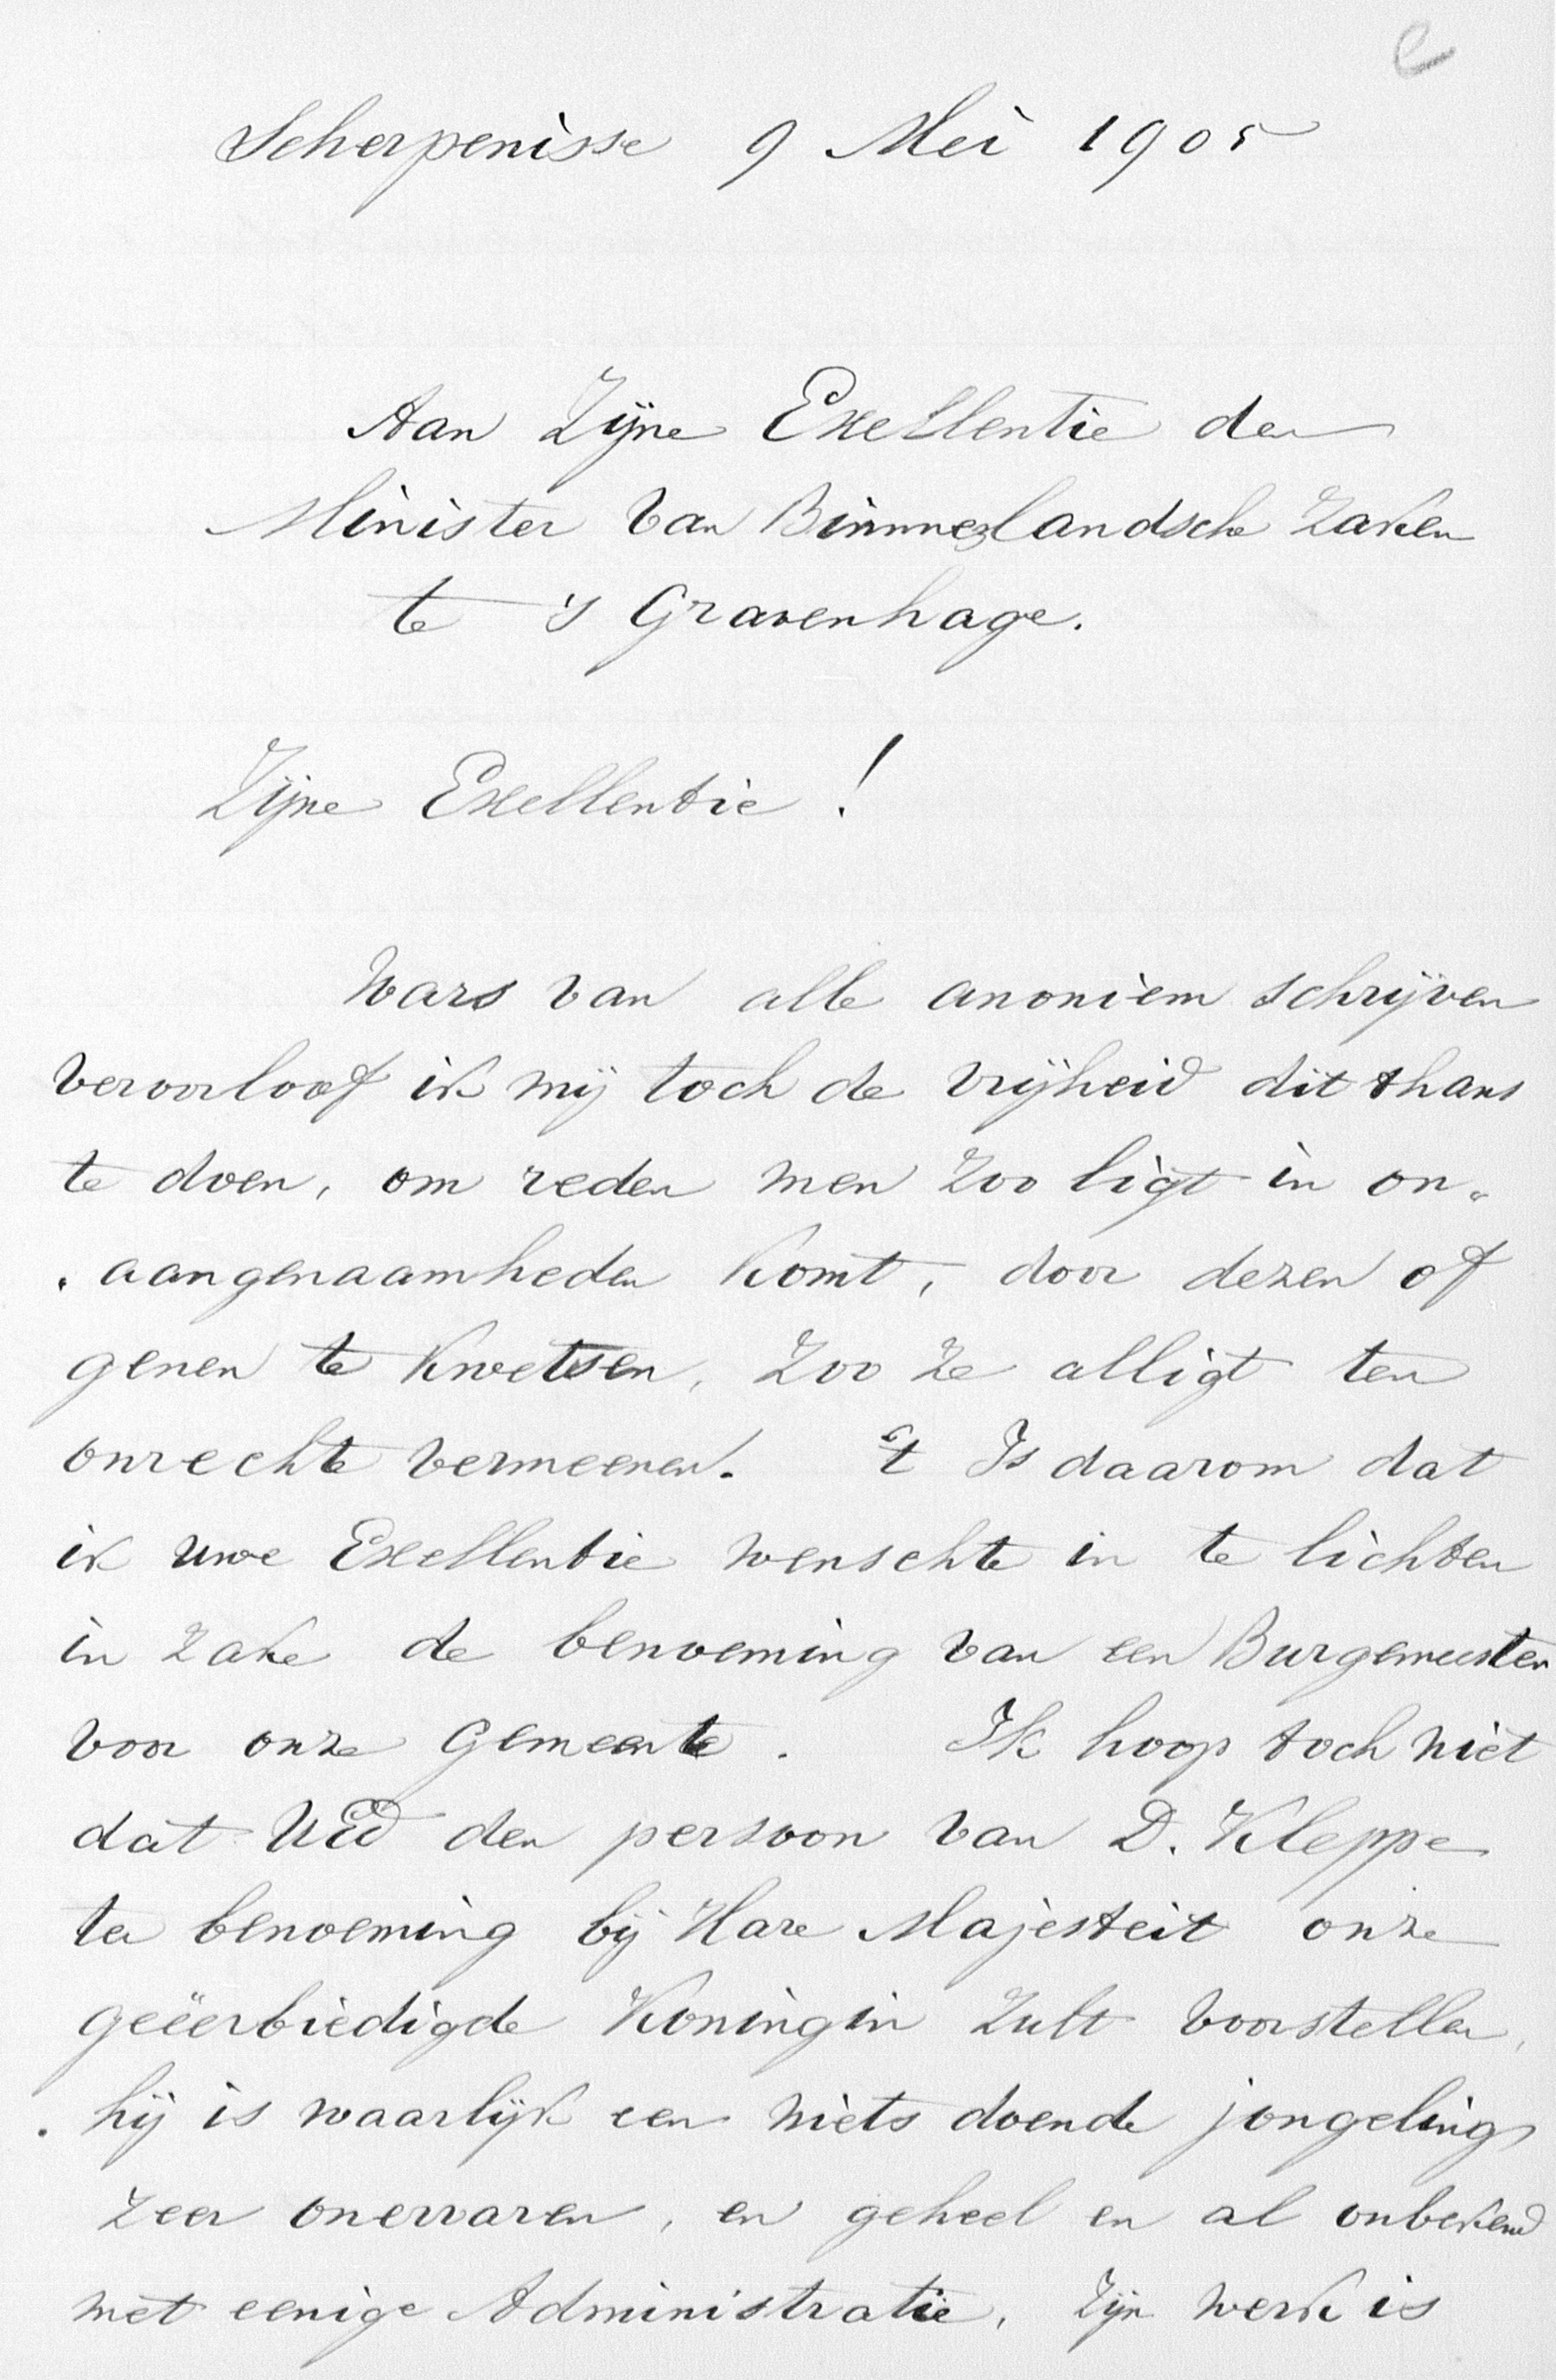 e
Scherpenisse 9 Mei 1905
Aan Zijne Exellentie den
Minister van Binnenlandsche Zaken
te 's Gravenhage.
Zijne Exellentie!
Wars van alle anoniem schrijven
veroorloof ik mij toch de vrijheid dit thans
te doen, om reden men zoo ligt in on„
„aangenaamheden komt, door dezen of
genen te kwetsen, zoo ze alligt ten
onrechte vermeenen. 't Is daarom dat
ik uwe Exellentie wenschte in te lichten
in zake de benoeming van een Burgemeester
voor onze Gemeente. Ik hoop toch niet
dat UEd den persoon van D. Kleppe
ter benoeming bij Hare Majesteit onze
geëerbiedigde Koningin zult voorstellen,
hij is waarlijk een niets doende jongeling
zeer onervaren, en geheel en al onbekend
met eenige Administratie, zijn werk is